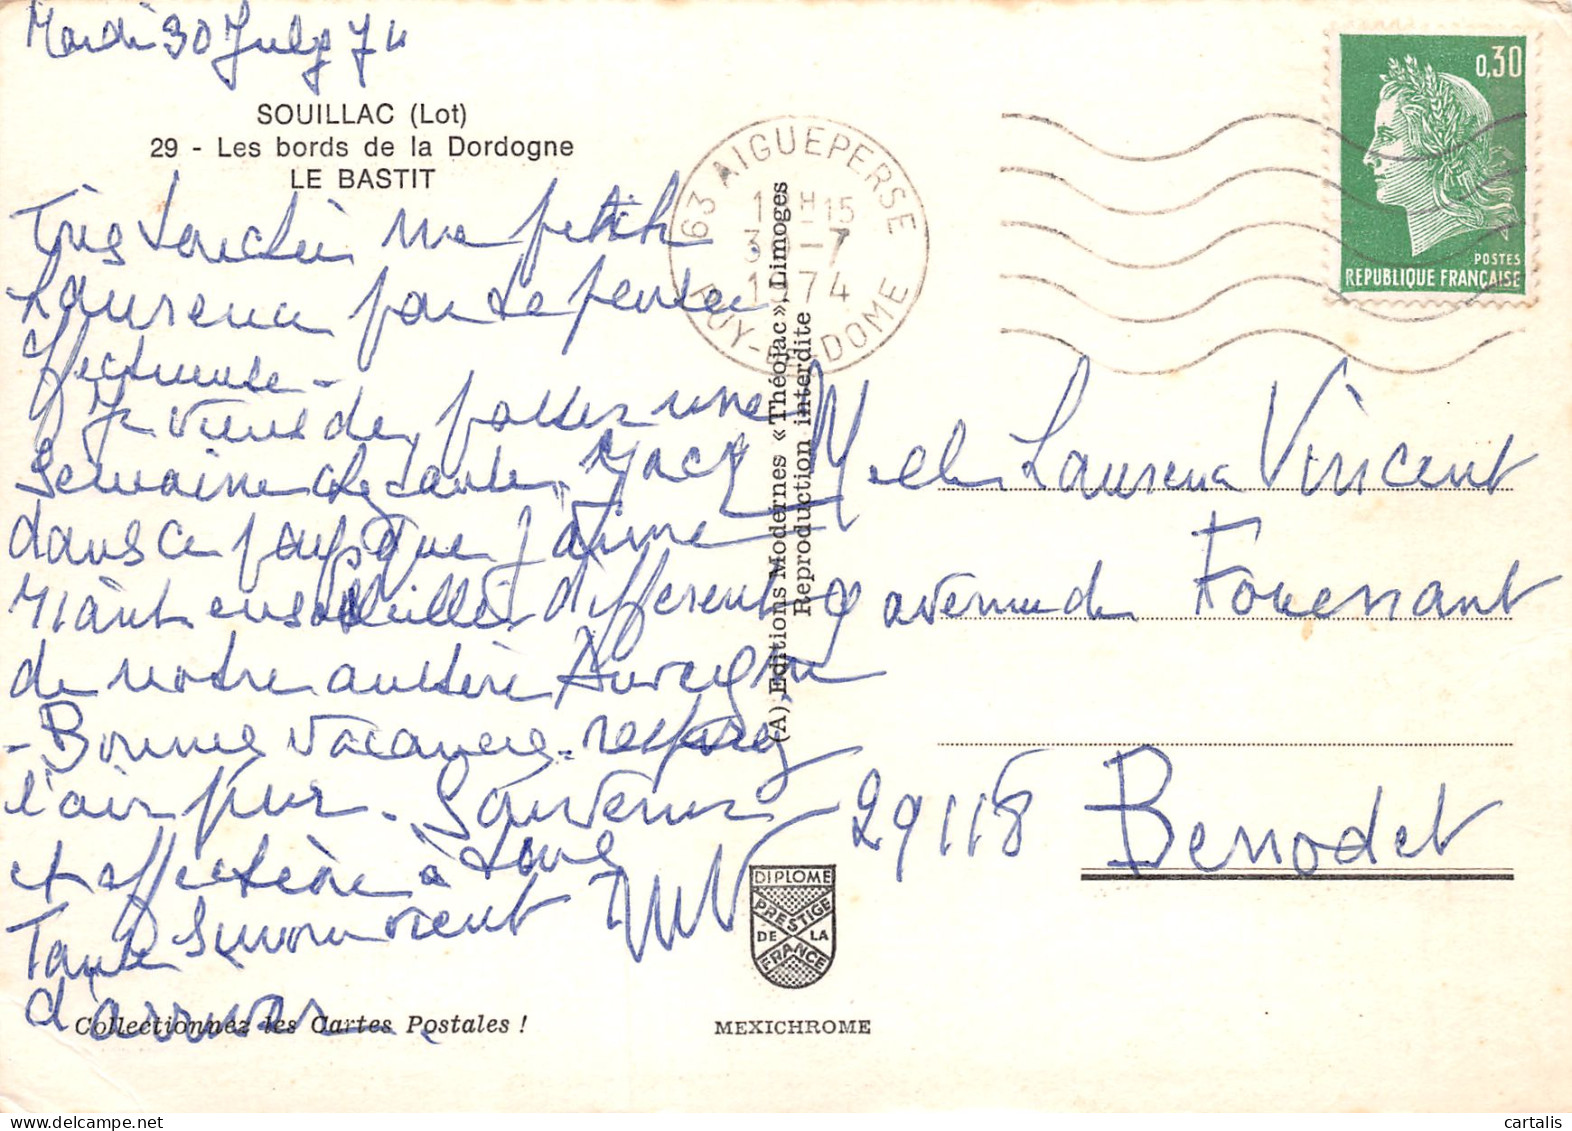 Mardi 30 July 74
SOUILLAC (Lot)
29 - Les bords de la Dordogne
LE BASTIT
Très touchée ma petite
Laurence par ta pensée
affectueuse -
Je viens de passer une
Semaine chez tante
dans ce pays que j'aime
riant ensoleillé, différent
de notre austère Auvergne
- Bonnes vacances - respirez
l'air pur - Souvenirs
et affection à tous
Tante Simone vient
d'arriver
63 AIGUEPERSE
1 H 15
3 - 7
1 74
PUY-E-DOME
(A) Editions Modernes « Théojac », Limoges
Reproduction interdite
0,30
POSTES
REPUBLIQUE FRANÇAISE
Melle Laurence Vincent
9 avenue de Fouesnant
29118 Benodet
DIPLOME
PRESTIGE
DE LA
FRANCE
Collectionnez les Cartes Postales !
MEXICHROME
cartalis for delcampe.net